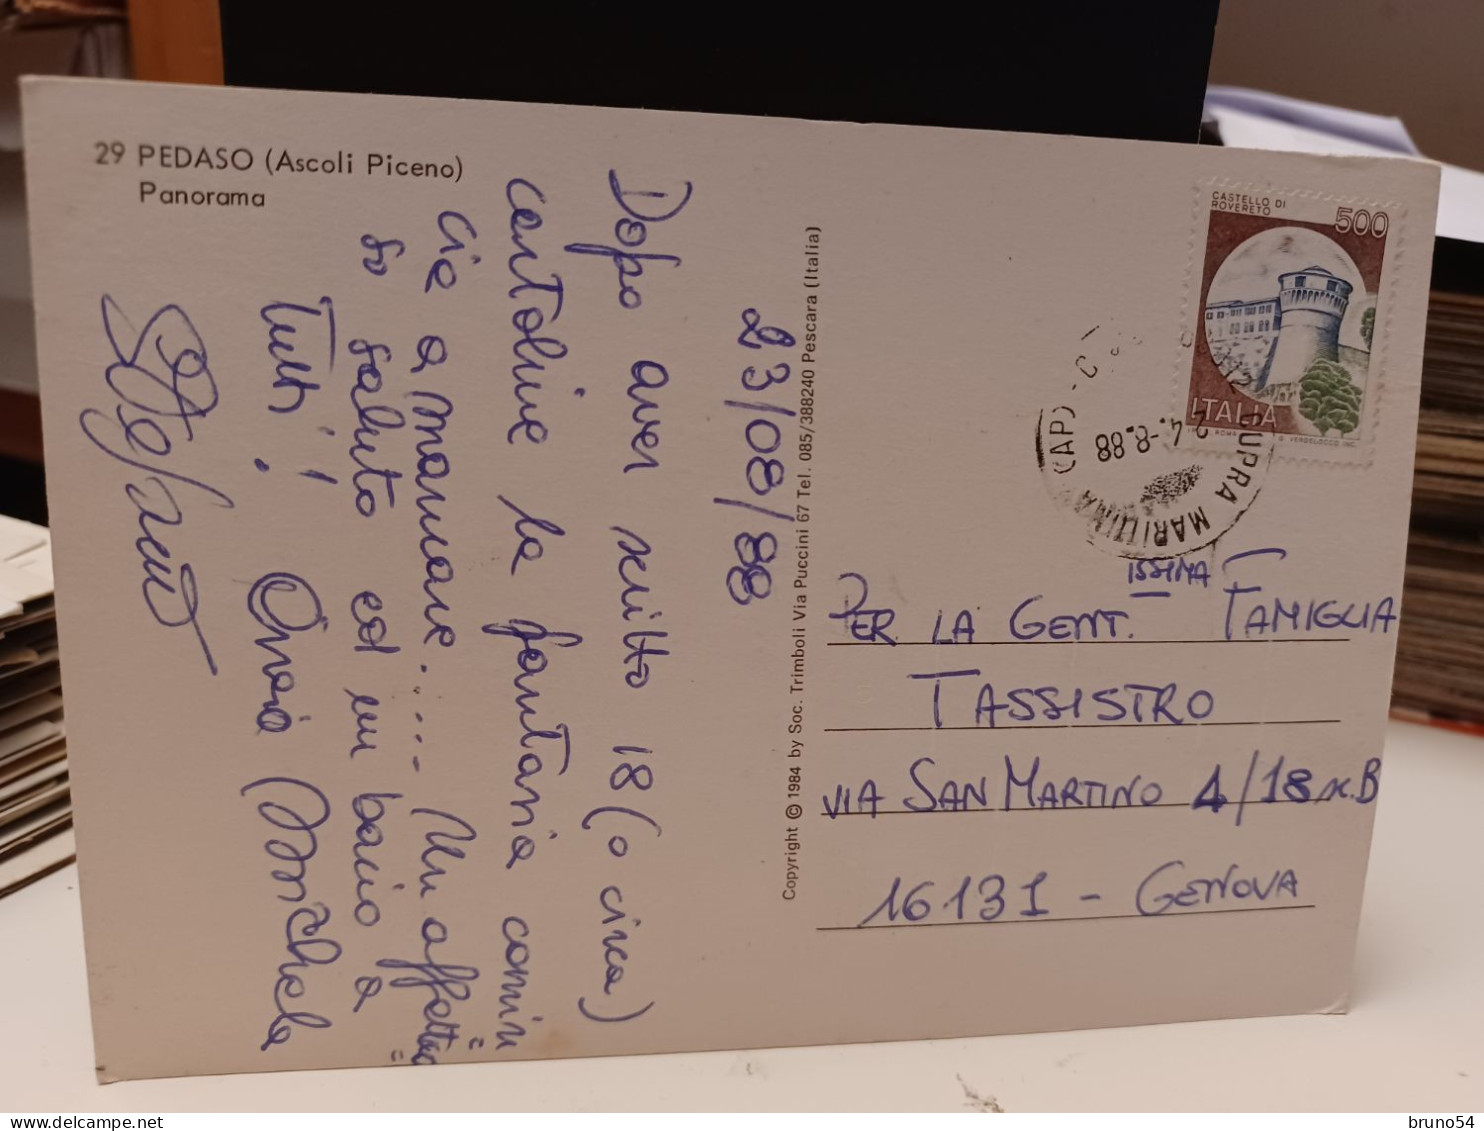 29 PEDASO (Ascoli Piceno)
Panorama
23/08/88
Dopo aver scritto 18 (o circa)
cartoline la fantasia comin
cia a mancare..... Un affettuo
so saluto ed un bacio a
Tutti! Ornia (Michela
Stefania
Copyright © 1984 by Soc. Trimboli Via Puccini 67 Tel. 085/388240 Pescara (Italia)
CASTELLO DI
ROVERETO
500
ITALIA
CUPRA MARITTIMA (AP)
24.-8.88
PER LA GENT.ISSIMA FAMIGLIA
TASSISTRO
VIA SAN MARTINO 4/18 sc.B
16131 - GENOVA
bruno54